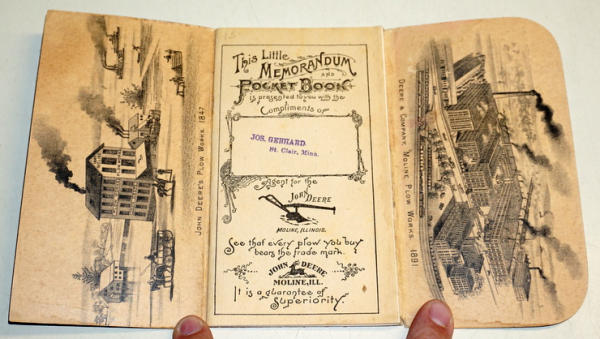 JOHN DEERE'S PLOW WORKS 1847
This Little
MEMORANDUM
AND
POCKET BOOK
is presented to you with the
Compliments of
JOS. GEBHARD.
St. Clair, Minn.
Agent for the
JOHN DEERE
MOLINE, ILLINOIS.
See that every plow you buy
bears the trade mark.
JOHN DEERE
MOLINE, ILL.
It is a guarantee of
Superiority.
DEERE & COMPANY, MOLINE PLOW WORKS. 1891